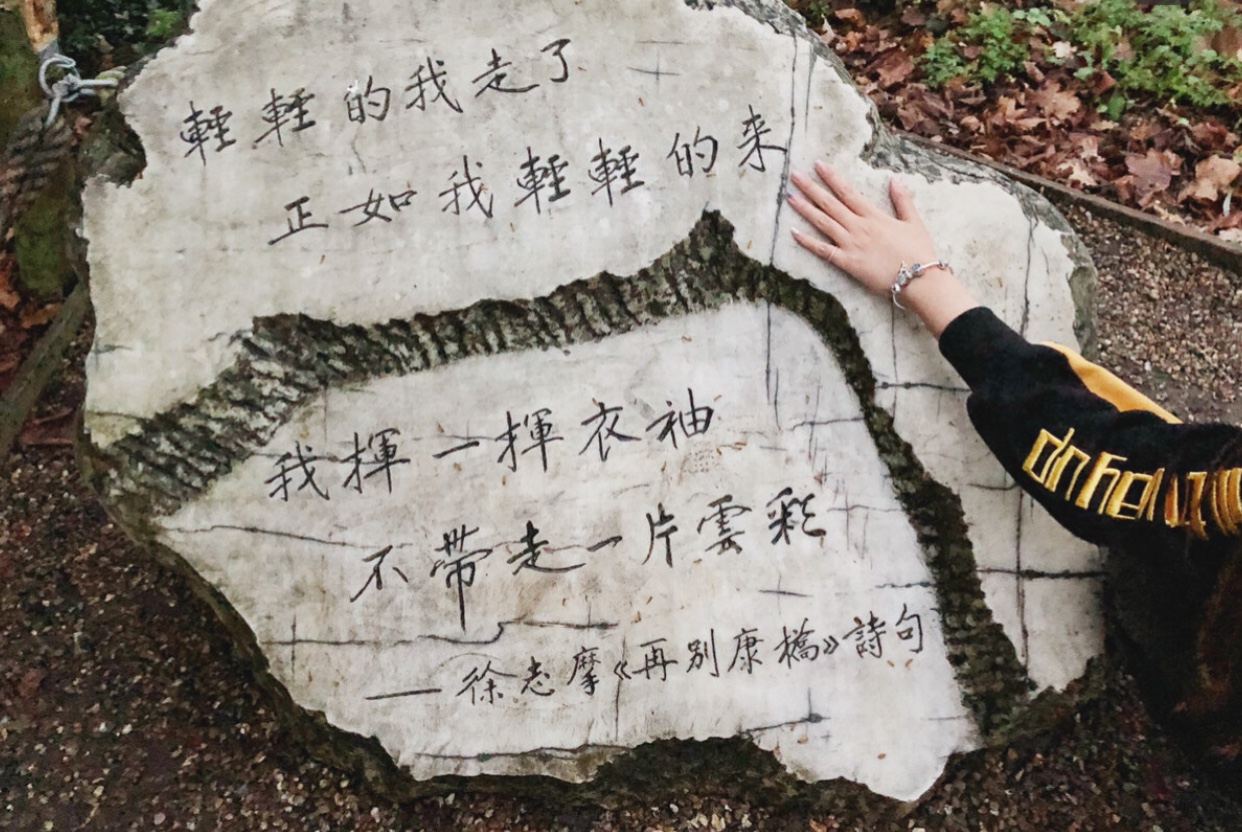 輕輕的我走了
正如我輕輕的来
我揮一揮衣袖
不帶走一片雲彩
——徐志摩《再別康橋》詩句